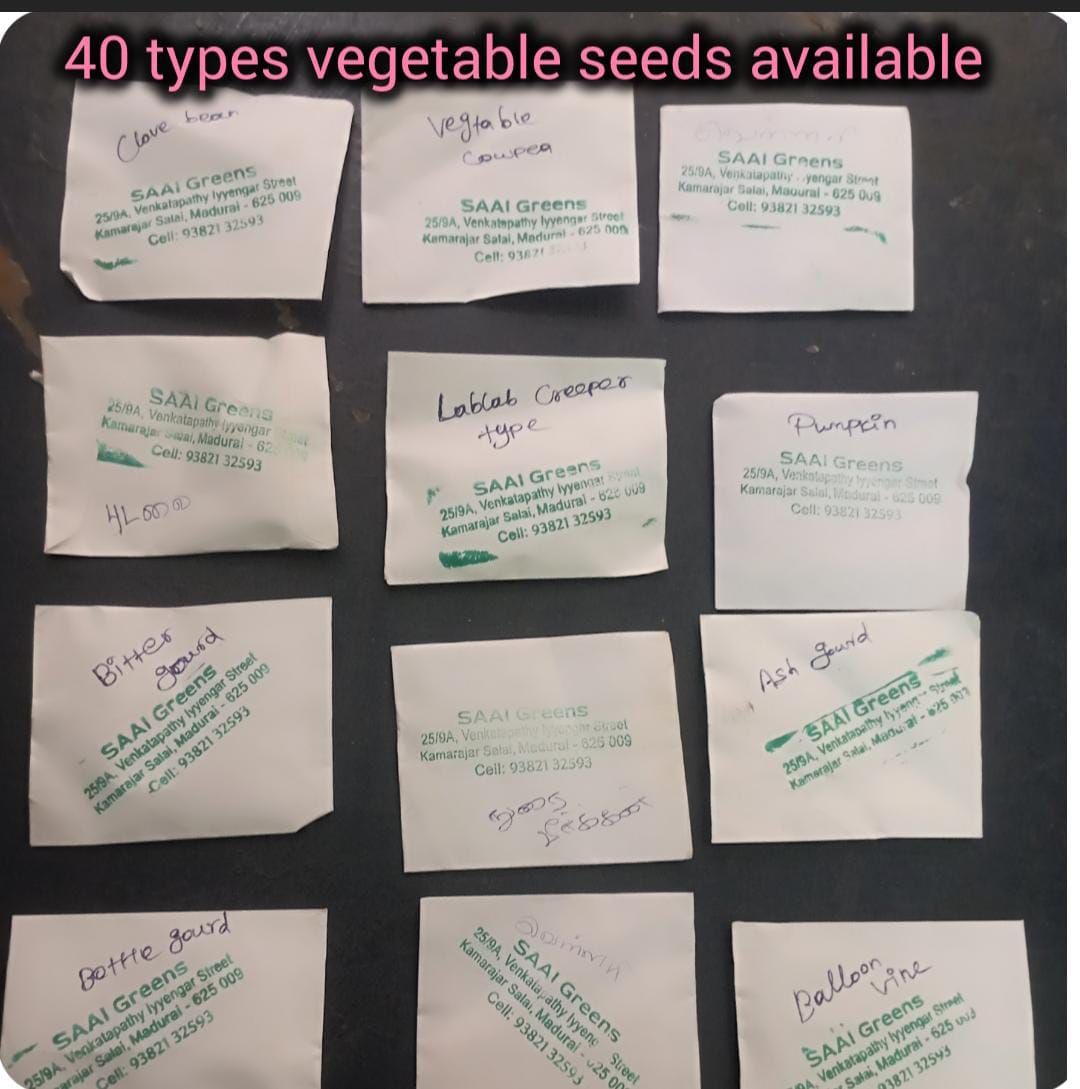 40 types vegetable seeds available
Clove bean
SAAI Greens
25/9A, Venkatapathy Iyyengar Street
Kamarajar Salai, Madurai - 625 009
Cell: 93821 32593
Vegtable
Cowpea
SAAI Greens
25/9A, Venkatapathy Iyyengar Street
Kamarajar Salai, Madurai - 625 009
Cell:
SAAI Greens
25/9A, Venkatapathy Street
Kamarajar Salai, Madurai - 625 009
Cell: 93821 32593
SAAI Greens
25/9A, Venkatapathy Iyyengar
Kamarajar Salai, Madurai -
Cell: 93821 32593
புடலை
Lablab Creeper
type
SAAI Greens
25/9A, Venkatapathy Iyyengar Street
Kamarajar Salai, Madurai - 625 009
Cell: 93821 32593
Pumpkin
SAAI Greens
25/9A, Venkatapathy Iyyengar Street
Kamarajar Salai, Madurai - 625 009
Cell: 93821 32593
Bitter
gourd
SAAI Greens
25/9A, Venkatapathy Iyyengar Street
Kamarajar Salai, Madurai - 625 009
Cell: 93821 32593
SAAI Greens
25/9A, Venkatapathy Iyyengar Street
Kamarajar Salai, Madurai - 625 009
Cell: 93821 32593
நுரை
பீர்க்கன்
Ash gourd
SAAI Greens
25/9A, Venkatapathy Street
Kamarajar Salai, Madurai - 625 009
Bottle gourd
SAAI Greens
25/9A, Venkatapathy Iyyengar Street
Kamarajar Salai, Madurai - 625 009
Cell: 93821 32593
SAAI Greens
25/9A, Venkatapathy Street
Kamarajar Salai, Madurai -
Cell: 93821 32593
Balloon
vine
SAAI Greens
Venkatapathy Iyyengar Street
Salai, Madurai - 625 009
93821 32593